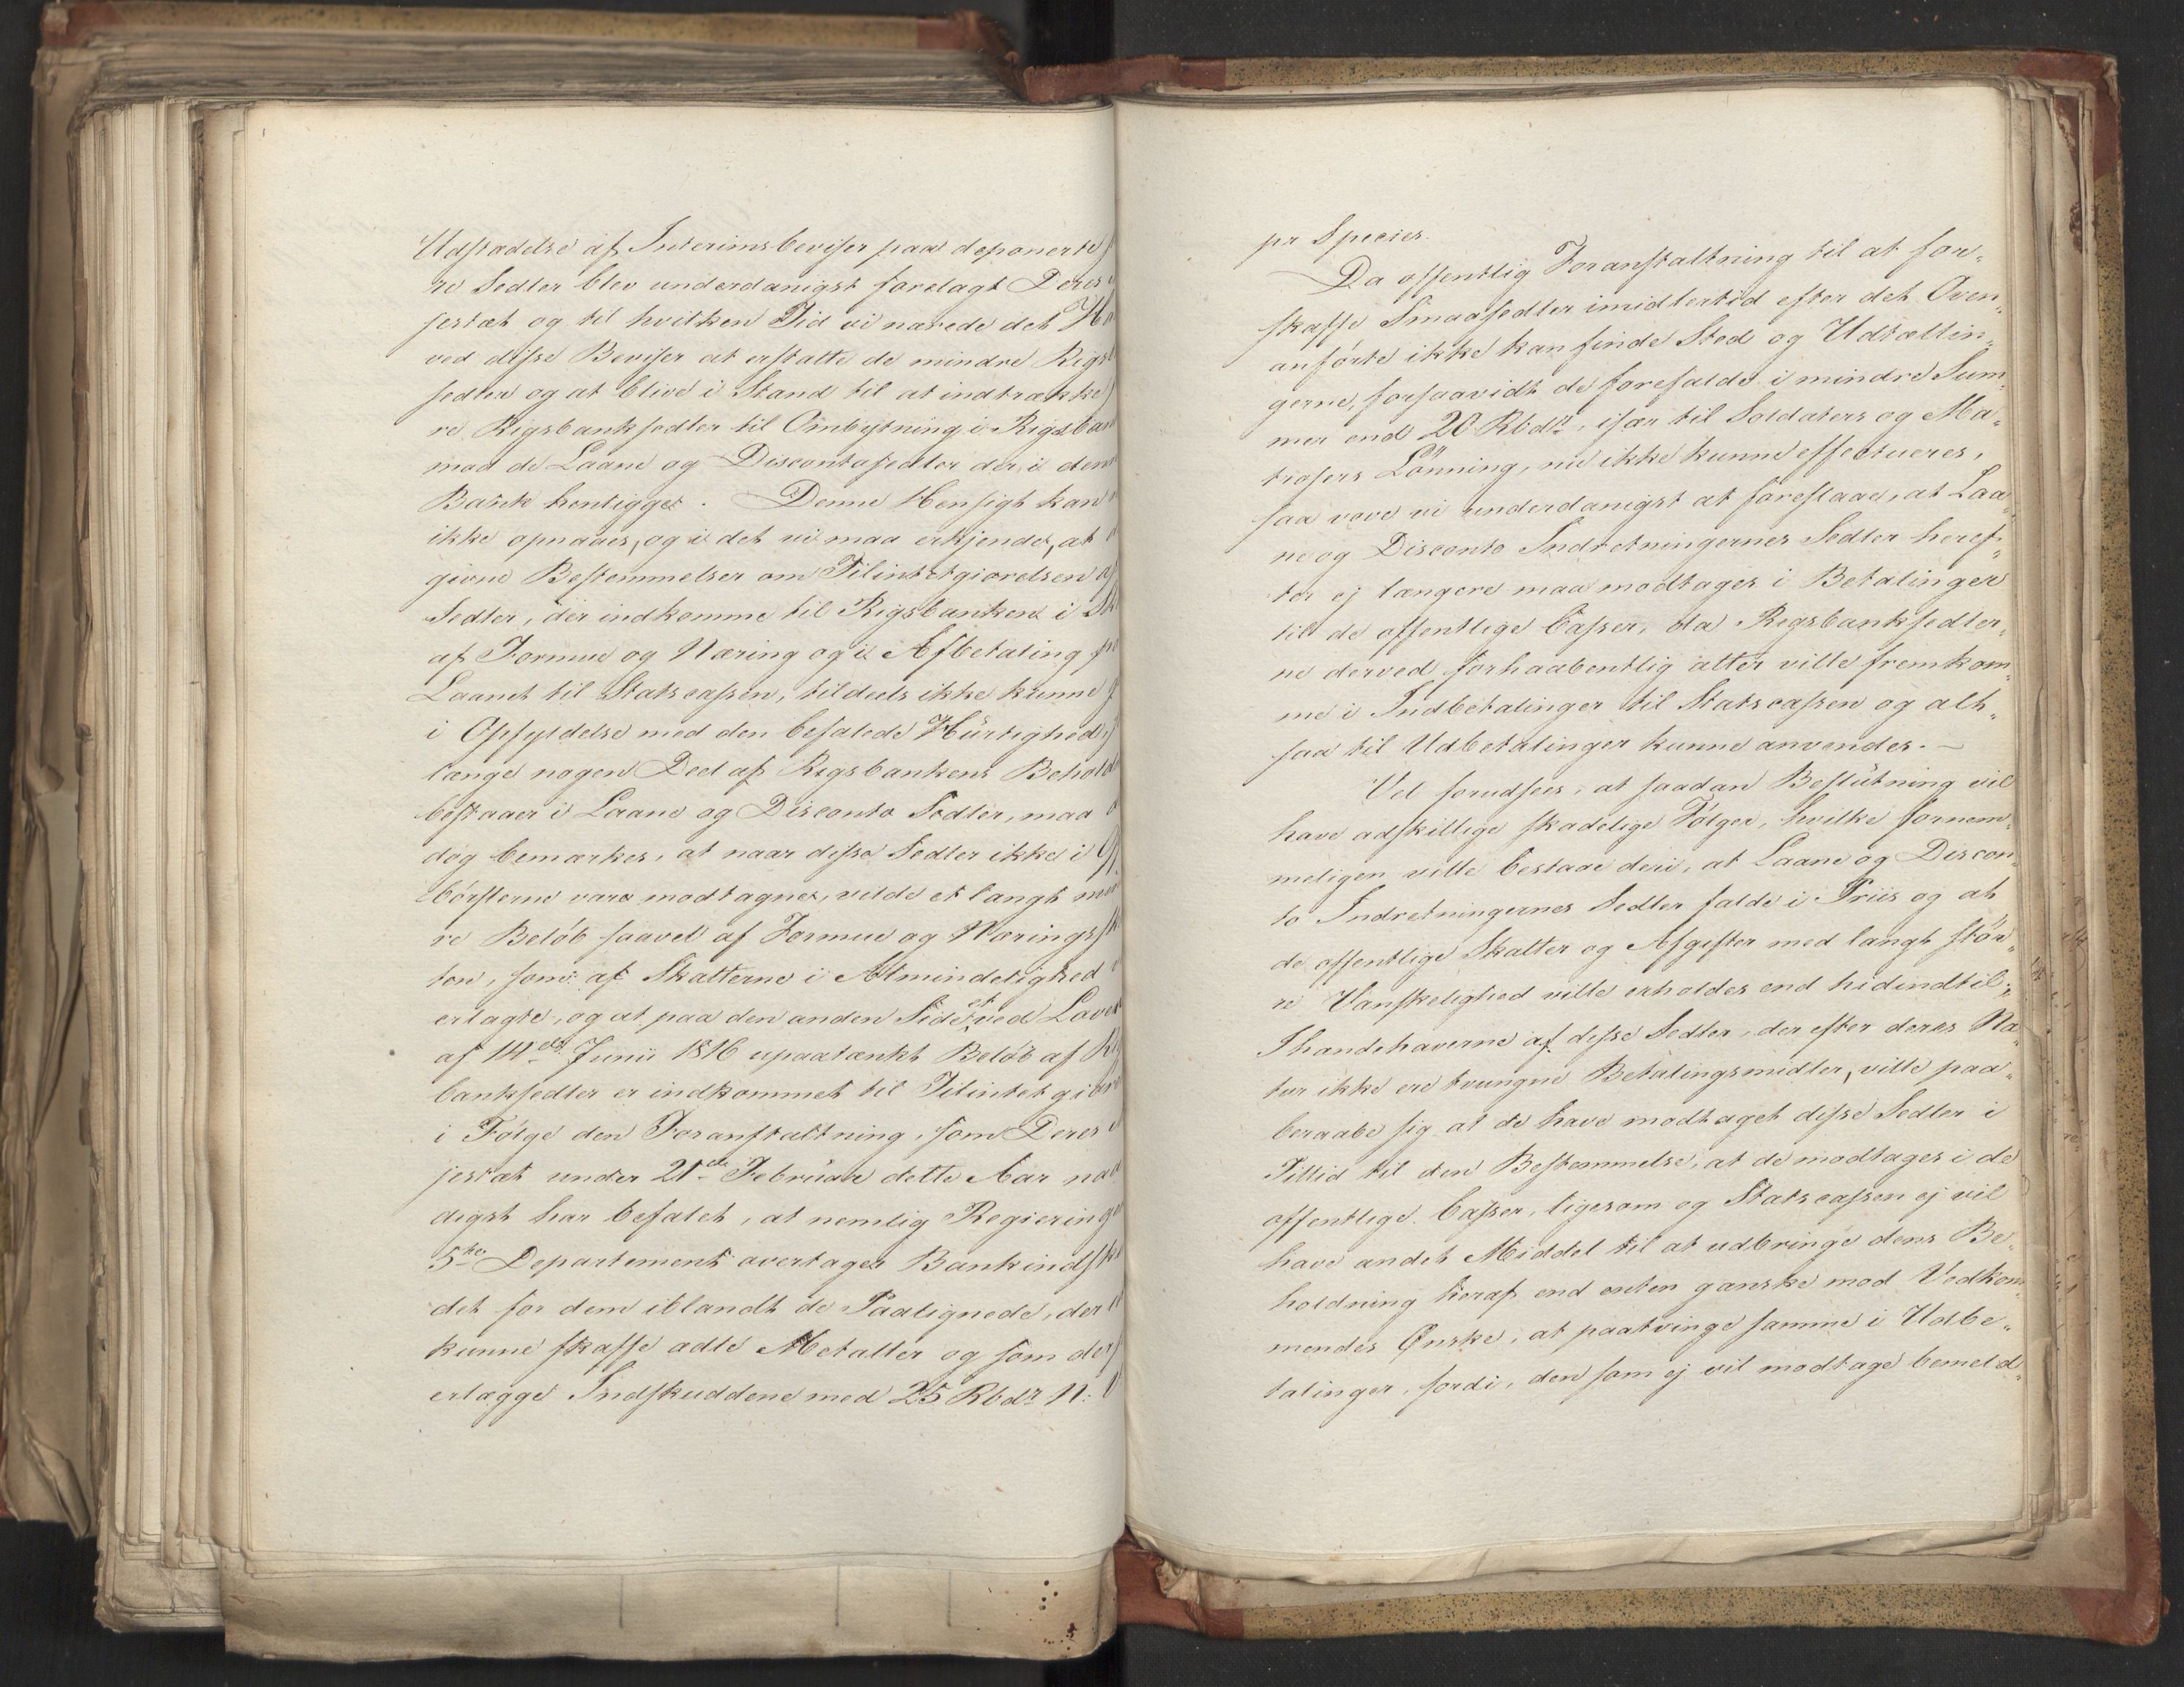 Udstædelse af Interimsbeviser paa deponerte
re Sedler blev underdanigst forelagt Deres
jestæt og til hvilken Tid vi nærede det
ved disse Beviser at erstatte de mindre Rigs
sedler og at blive i Stand til at indtrække
re Rigsbanksedler til Ombytning i Rigsban
mod de Laane og Discontosedler der, i den
Bank henligger. Denne Hensigt kan
ikke opnaaes, og i det vi maa erkjende, at
givne Bestemmelser om Tilintetgiørelsen af
Sedler, der indkomme til Rigsbanken i Sk
af Formue og Næring og i Afbetaling
Laanet til Statscassen, tildeels ikke kunne
i Opfyldelse med den befalede Hurtighed,
længe nogen Deel af Rigsbankens Behold
bestaaer i Laane og Disconto Sedler, maa
dog bemærkes, at naar disse Sedler ikke i
børsterne vare modtagne, vilde et langt min
re Beløb saavel af Formue og Næringssk
ten, som af Skatterne i Almindelighed
erlagte, og at paa den anden Side et ved Loven
af 14de Junii 1816 upaatænkt Beløb af
banksedler er indkommet til Tilintetgiøre
i Følge den Foranstaltning, som Deres
jestæt under 21de Februar dette Aar naa
digst har befalet, at nemlig Regieringe
5te Departement overtager Bankindsk
det for dem iblandt de Paalignede, der
kunne skaffe ædle Metaller og som der
erlægge Indskuddene med 25 Rbdr N:
pr Species.
Da offentlig Foranstaltning til at for„
skaffe Smaasedler imidlertid efter det Oven„
anførte ikke kan finde Sted og Udtællin„
gerne, forsaavidt de forefalde i mindre Sum„
mer end 20 Rbdr, især til Soldaters og Ma„
trosers Lønning, nu ikke kunne effectueres,
saa vove vi underdanigst at foreslaae, at Laa„
ne og Disconto Indretningernes Sedler heref„
ter ej længere maa modtages i Betalinger
til de offentlige Casser, da Rigsbanksedler„
ne derved forhaabentlig atter ville fremkom„
me i Indbetalinger til Statscassen og alt„
saa til Udbetalinger kunne anvendes. —
Vel forudsees, at saadan Beslutning vil
have adskillige skadelige Følger, hvilke fornem„
meligen ville bestaae deri, at Laane og Discon„
to Indretningernes Sedler falde i Priis og at
de offentlige Skatter og Afgifter med langt stør„
re Vanskelighed ville erholdes end hidindtil;
Ihændehaverne af disse Sedler, der efter deres Na„
tur ikke ere tvungne Betalingsmidler, ville paa„
beraabe sig at de have modtaget disse Sedler i
Tillid til den Bestemmelse, at de modtages i de
offentlige Casser, ligesom og Statscassen ej vil
have andet Middel til at udbringe dens Be„
holdning heraf end enten ganske mod Vedkom„
mendes Ønske, at paatvinge samme i Udbe„
talinger, fordi, den som ej vil modtage bemeld„